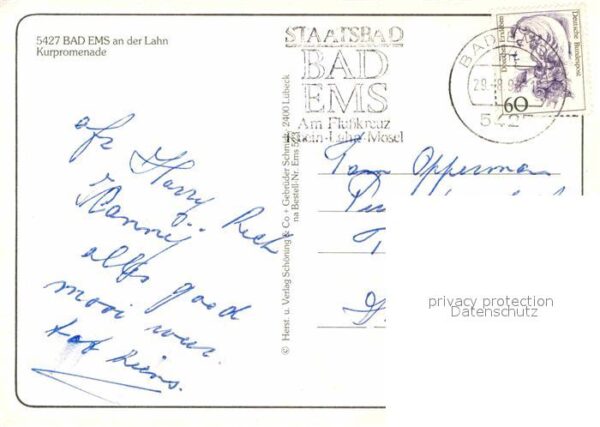 5427 BAD EMS an der Lahn
Kurpromenade
STAATSBAD
BAD
EMS
Am Flußkreuz
Rhein-Lahn-Mosel
BAD EMS
29.-8.9
5427
60
Deutsche Bundespost
© Herst. u. Verlag Schöning & Co + Gebrüder Schmidt, 2400 Lübeck
na Bestell-Nr. Ems
afz Harry
Nanny
alles goed
mooi weer.
tot ziens.
Fam Opperman
privacy protection
Datenschutz